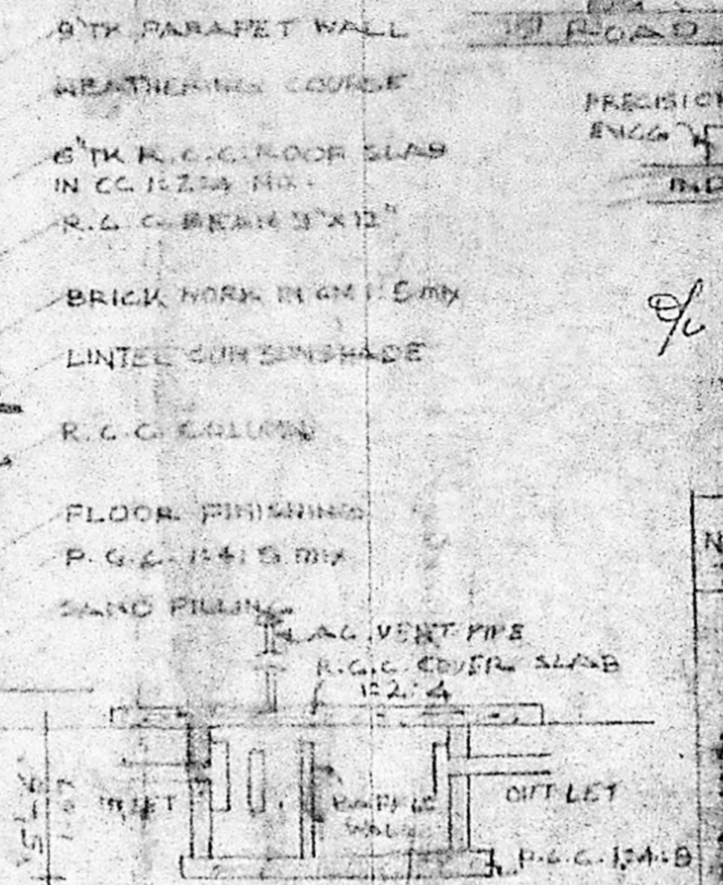 9"TK PARAPET WALL
WEATHERING COURSE
6"TK R.C.C. ROOF SLAB
IN CC 1:2:4 MIX
R.C.C BEAM 9"X12"
BRICK WORK IN CM 1:5 MIX
LINTEL CUM SUNSHADE
R.C.C. COLUMN
FLOOR FINISHING
P.C.C. 1:4:8 MIX
SAND FILLING
A.C. VENT PIPE
R.C.C. COVER SLAB
1:2:4
INLET
BAFFLE
WALL
OUTLET
P.C.C. 1:4:8
ROAD
PRECISION
ENGG
IND
N